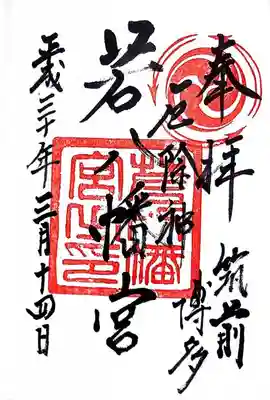 奉拝
筑前
博多
厄除神
若八幡宮
若八幡
宮之印
平成三十年三月十四日